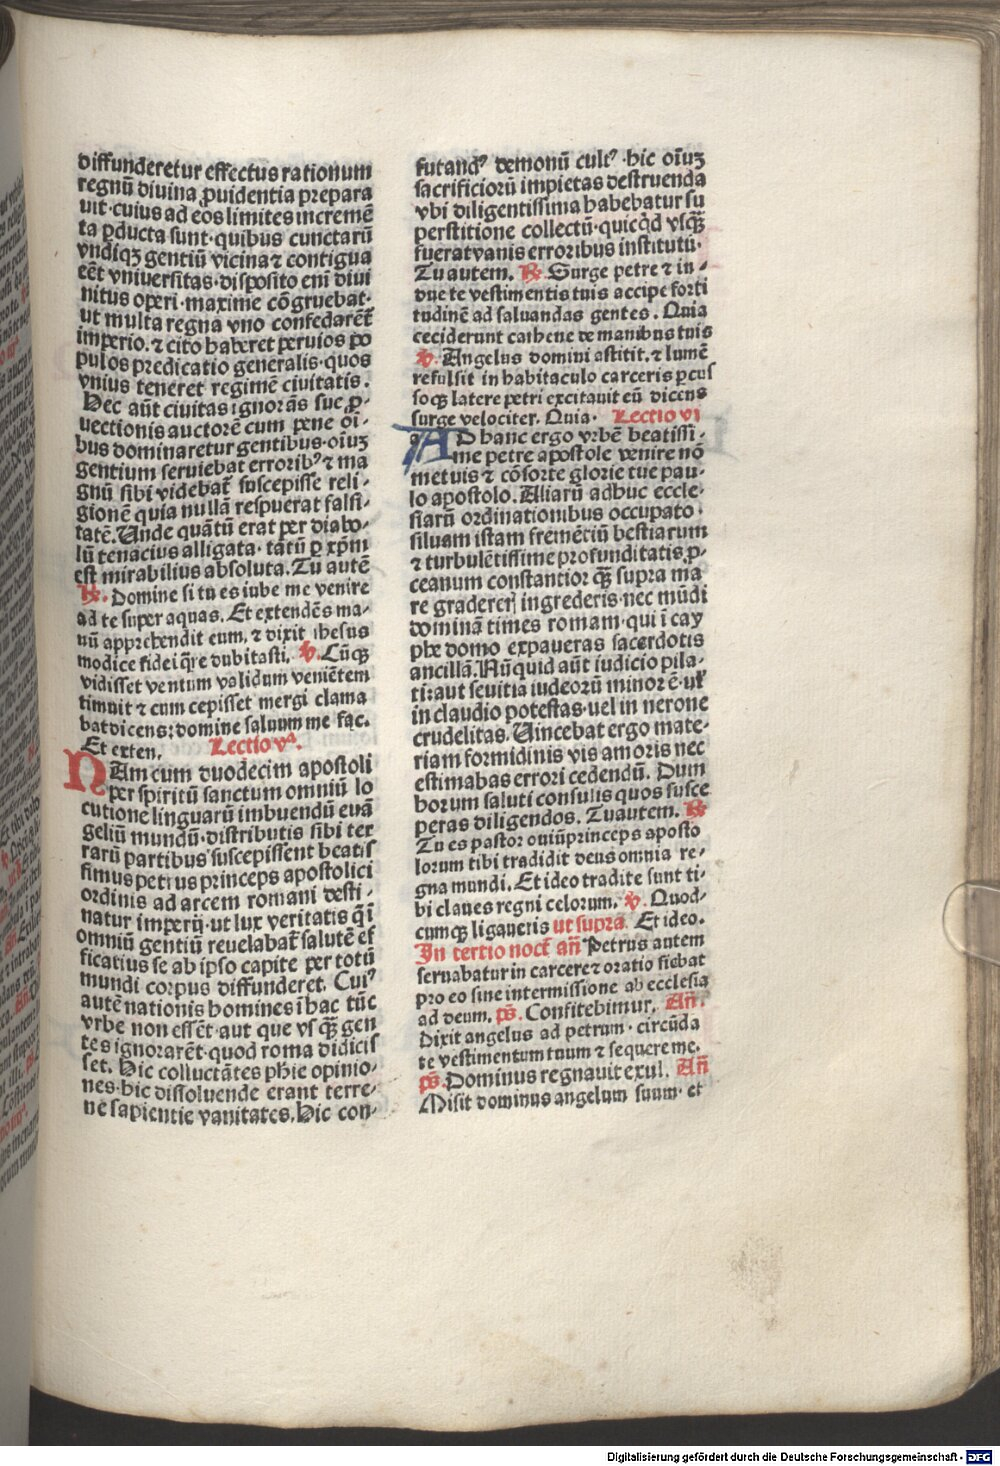 diffunderetur effectus rationum
regnū diuina ꝓuidentia prepara
uit·cuius ad eos limites incremē
ta ꝑducta sunt·quibus cunctarū
vndiqꝫ gentiū vicina ⁊ contigua
eēt vniuersitas·disposito eni diui
nitus operi·maxime cōgruebat·
ut multa regna vno confedarēt̄
imperio.⁊ cito haberet peruios po
pulos predicatio generalis·quos
vnius teneret regimē ciuitatis.
Hec aūt ciuitas ignorās sue ꝓ-
uectionis auctorē cum pene oī-
bus dominaretur gentibus·oīuꝫ
gentium seruiebat erroribꝰ ⁊ ma
gnū sibi videbat̄ suscepisse reli-
gionē quia nullā respuerat falsi-
tatē.Unde quātū erat per diabo-
lū tenacius alligata·tātū ꝑ xp̄m
est mirabilius absoluta.Tu autē
℞. Domine si tu es iube me venire
ad te super aquas. Et extendēs ma-
nū apprehendit eum.⁊ dixit ihesus
modice fidei q̄re dubitasti. ℣. Cūqꝫ
vidisset ventum validum veniētem
timuit ⁊ cum cepisset mergi clama
bat dicens: domine saluum me fac.
Et exten. Lectio vᵃ.
NAm cum duodecim apostoli
per spiritū sanctum omniū lo
cutione linguarū imbuendū euā
geliū mundū·distributis sibi ter
rarū partibus suscepissent beatis
simus petrus princeps apostolici
ordinis ad arcem romani desti-
natur imperij·ut lux veritatis q̄ ī
omniū gentiū reuelabat̄ salutē ef
ficatius se ab ipso capite per totū
mundi corpus diffunderet. Cuiꝰ
autē nationis homines ī hac tūc
vrbe non essēt·aut que vsqꝫ gen
tes ignorarēt·quod roma didicis
set. Hic colluctātes phīe opinio-
nes·hic dissoluende erant terre-
ne sapientie vanitates.Hic con-
futandꝰ demonū cultꝰ·hic oīuꝫ
sacrificiorū impietas destruenda
vbi diligentissima habebatur su
perstitione collectū·quicq̇d vsqꝫ
fuerat vanis erroribus institutū·
Tu autem. ℞. Surge petre ⁊ in-
due te vestimentis tuis accipe forti
tudinē ad saluandas gentes. Quia
ceciderunt cathene de manibus tuis
℣. Angelus domini astitit.⁊ lumē
refulsit in habitaculo carceris ꝑcus
soqꝫ latere petri excitauit eū dicens
surge velociter. Quia· Lectio vi
AD hanc ergo vrbē beatissi-
me petre apostole venire nō
metuis ⁊ cōsorte glorie tue pau-
lo apostolo.Aliarū adhuc eccle-
siarū ordinationibus occupato·
siluam istam fremētiū bestiarum
⁊ turbulētissime profunditatis ꝓ-
ceanum constantior qꝫ supra ma
re graderer ingrederis·nec mūdi
dominā times romam·qui ī cay
phe domo expaueras sacerdotis
ancillā.Nūquid aūt iudicio pila-
ti:aut seuitia iudeorū minor ē·uł
in claudio potestas·uel in nerone
crudelitas.Uincebat ergo mate-
riam formidinis vis amoris nec
estimabas errori cedendū. Dum
horum saluti consulis quos susce
peras diligendos. Tu autem. ℞.
Tu es pastor ouiū princeps aposto
lorum tibi tradidit deus omnia re-
gna mundi. Et ideo tradite sunt ti-
bi claues regni celorum. ℣. Quod-
cumqꝫ ligaueris ut supra. Et ideo.
In tertio noct̄ an̄ Petrus autem
seruabatur in carcere ⁊ oratio fiebat
pro eo sine intermissione ab ecclesia
ad deum. ps̄. Confitebimur. An̄.
Dixit angelus ad petrum·circūda
te vestimentum tuum ⁊ sequere me.
ps̄. Dominus regnauit exul. An̄
Misit dominus angelum suum·et
Digitalisierung gefördert durch die Deutsche Forschungsgemeinschaft - DFG